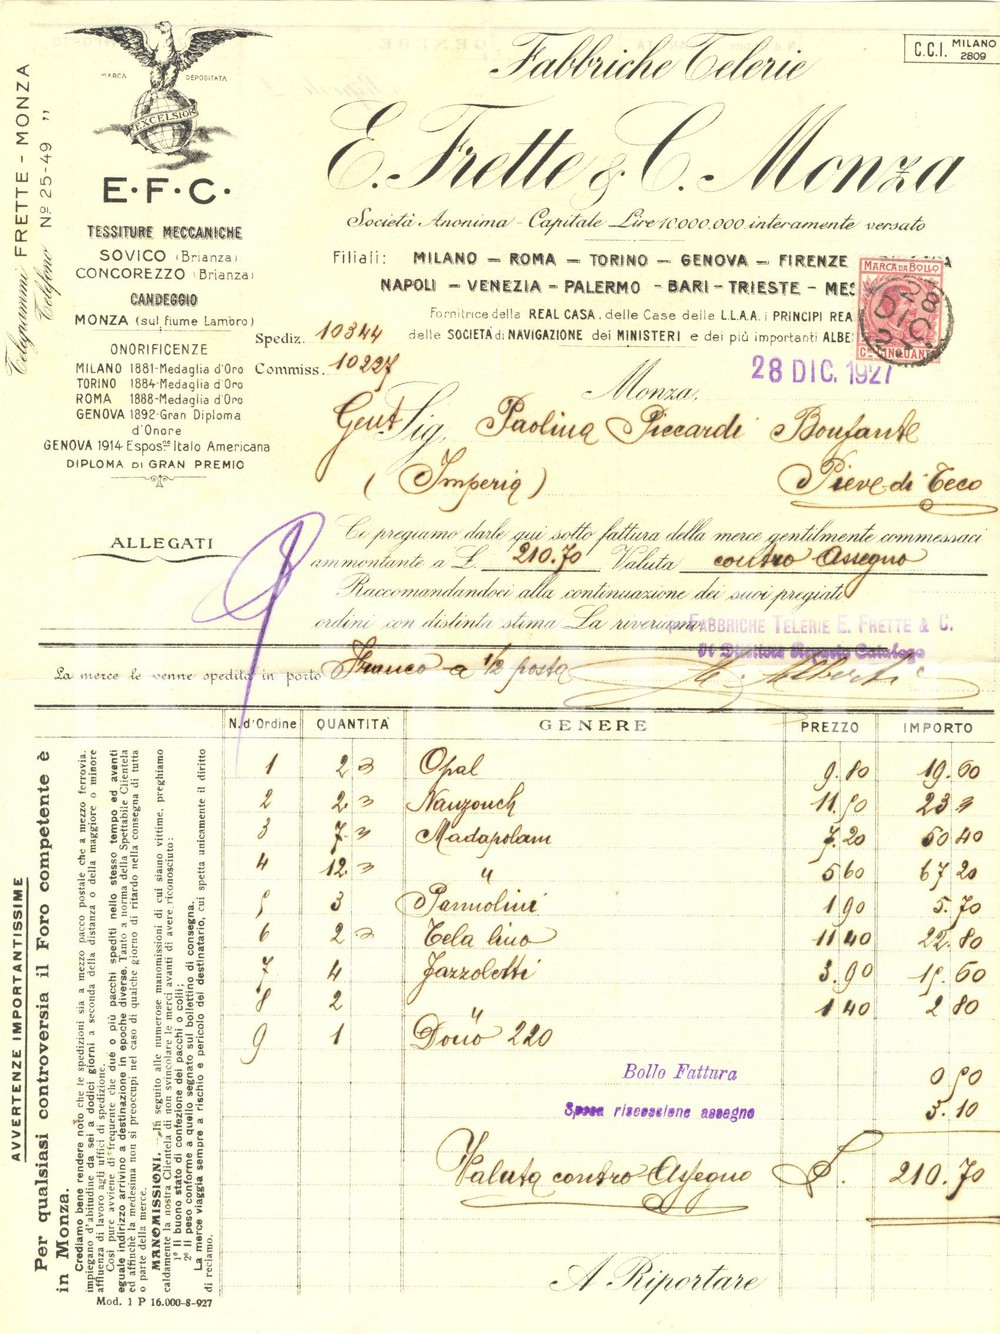 MARCA DEPOSITATA
EXCELSIOR
E·F·C·
TESSITURE MECCANICHE
SOVICO (Brianza)
CONCOREZZO (Brianza)
CANDEGGIO
MONZA (sul fiume Lambro)
ONORIFICENZE
MILANO 1881-Medaglia d'Oro
TORINO 1884-Medaglia d'Oro
ROMA 1888-Medaglia d'Oro
GENOVA 1892-Gran Diploma
d'Onore
GENOVA 1914 Espos.ne Italo Americana
DIPLOMA DI GRAN PREMIO
Telegrammi FRETTE - MONZA
Telefono Nº 25-49 "
C.C.I. MILANO 2809
Fabbriche Telerie
E. Frette & C. Monza
Società Anonima - Capitale Lire 10.000.000 interamente versato
Filiali: MILANO - ROMA - TORINO - GENOVA - FIRENZE
NAPOLI - VENEZIA - PALERMO - BARI - TRIESTE - MES
Fornitrice della REAL CASA, delle Case delle LL.AA. i PRINCIPI REA
delle SOCIETÀ di NAVIGAZIONE dei MINISTERI e dei più importanti ALBE
MARCA DA BOLLO
C. CINQUANT
28 DIC
Spediz. 10344
Commiss. 10227
28 DIC. 1927
Monza,
Gent Sig. Paolina Piccardi Bonfante
(Imperia) Pieve di Teco
ALLEGATI
Ci pregiamo darle qui sotto fattura della merce gentilmente commessaci
ammontante a £. 210.70 Valuta contro Assegno
Raccomandandoci alla continuazione dei suoi pregiati
ordini con distinta stima La riveriamo
FABBRICHE TELERIE E. FRETTE & C.
Il Direttore Reparto Catalogo
9
La merce le venne spedita in porto Franco a 1/2 posta
N. d'Ordine QUANTITA' GENERE PREZZO IMPORTO
1 2 Opal 9.80 19.60
2 2 Nanzouch 11.50 23
3 7 Madapolam 7.20 50 40
4 12 " 5 60 67 20
5 3 Pannolini 1 90 5.70
6 2 Tela lino 11 40 22.80
7 4 Fazzoletti 3.90 15.60
8 2 " 1 40 2 80
9 1 Dono 220
Bollo Fattura 0 50
Spesa riscossione assegno 3.10
Valuta contro Assegno £. 210.70
A Riportare
AVVERTENZE IMPORTANTISSIME
Per qualsiasi controversia il Foro competente è
in Monza.
Crediamo bene rendere noto che le spedizioni sia a mezzo pacco postale che a mezzo ferrovia,
impiegano d'abitudine da sei a dodici giorni a seconda della distanza o della maggiore o minore
affluenza di lavoro agli uffici di spedizione.
Così pure avviene di frequente che due o più pacchi spediti nello stesso tempo ed aventi
eguale indirizzo arrivino a destinazione in epoche diverse. Tanto a norma della Spettabile Clientela
ed affinchè la medesima non si preoccupi nel caso di qualche giorno di ritardo nella consegna di tutta
o parte della merce.
MANOMISSIONI. - In seguito alle numerose manomissioni di cui siamo vittime, preghiamo
caldamente la nostra Clientela di non svincolare le merci avanti di avere riconosciuto:
1º Il buono stato di confezione dei pacchi o colli;
2º Il peso conforme a quello segnato sul bollettino di consegna.
La merce viaggia sempre a rischio e pericolo del destinatario, cui spetta unicamente il diritto
di reclamo.
Mod. 1 P 16.000-8-927